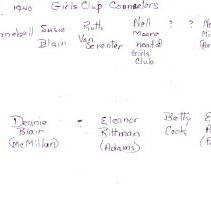 1940 Girls Club Counselors
Susie Blair
Ruth Van Serenter
Neil Moore head of Girls Club
?
?
Deanie Blair (McMillan)
?
Eleanor Rittman (Adams)
Betty Cook